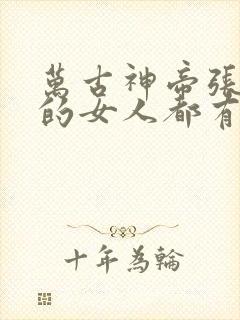 萬古神帝張
的女人都有
十年為輪